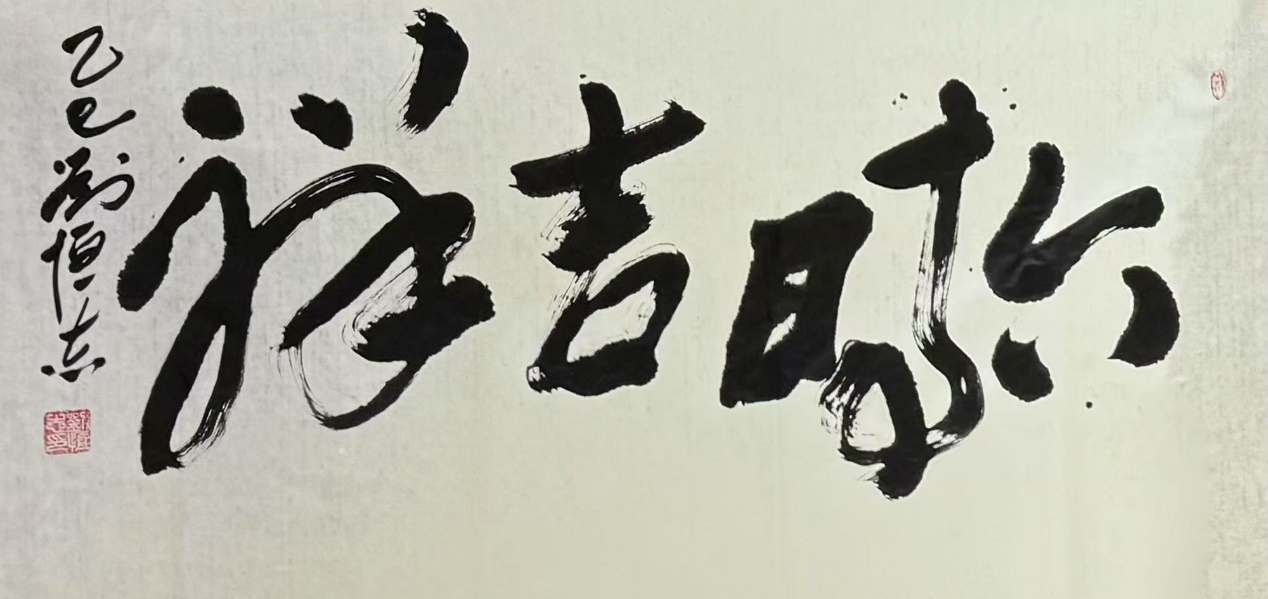 六時吉祥
乙巳劉恒志